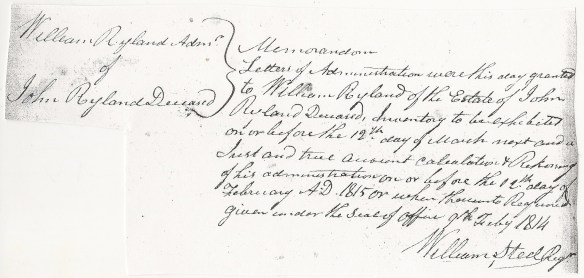 William Ryland Admr
of
John Ryland Deceased
Memorandom
Letters of Administration were this day granted
to William Ryland of the Estate of John
Ryland Deceased, Inventory to be exhibited
on or before the 12th day of March next and a
Just and true account Calculation & Reckoning
of his administration on or before the 12th day of
February A.D. 1815 or when thereunto Required
given under the Seal of office 9th Feby 1814
William Steel Regr